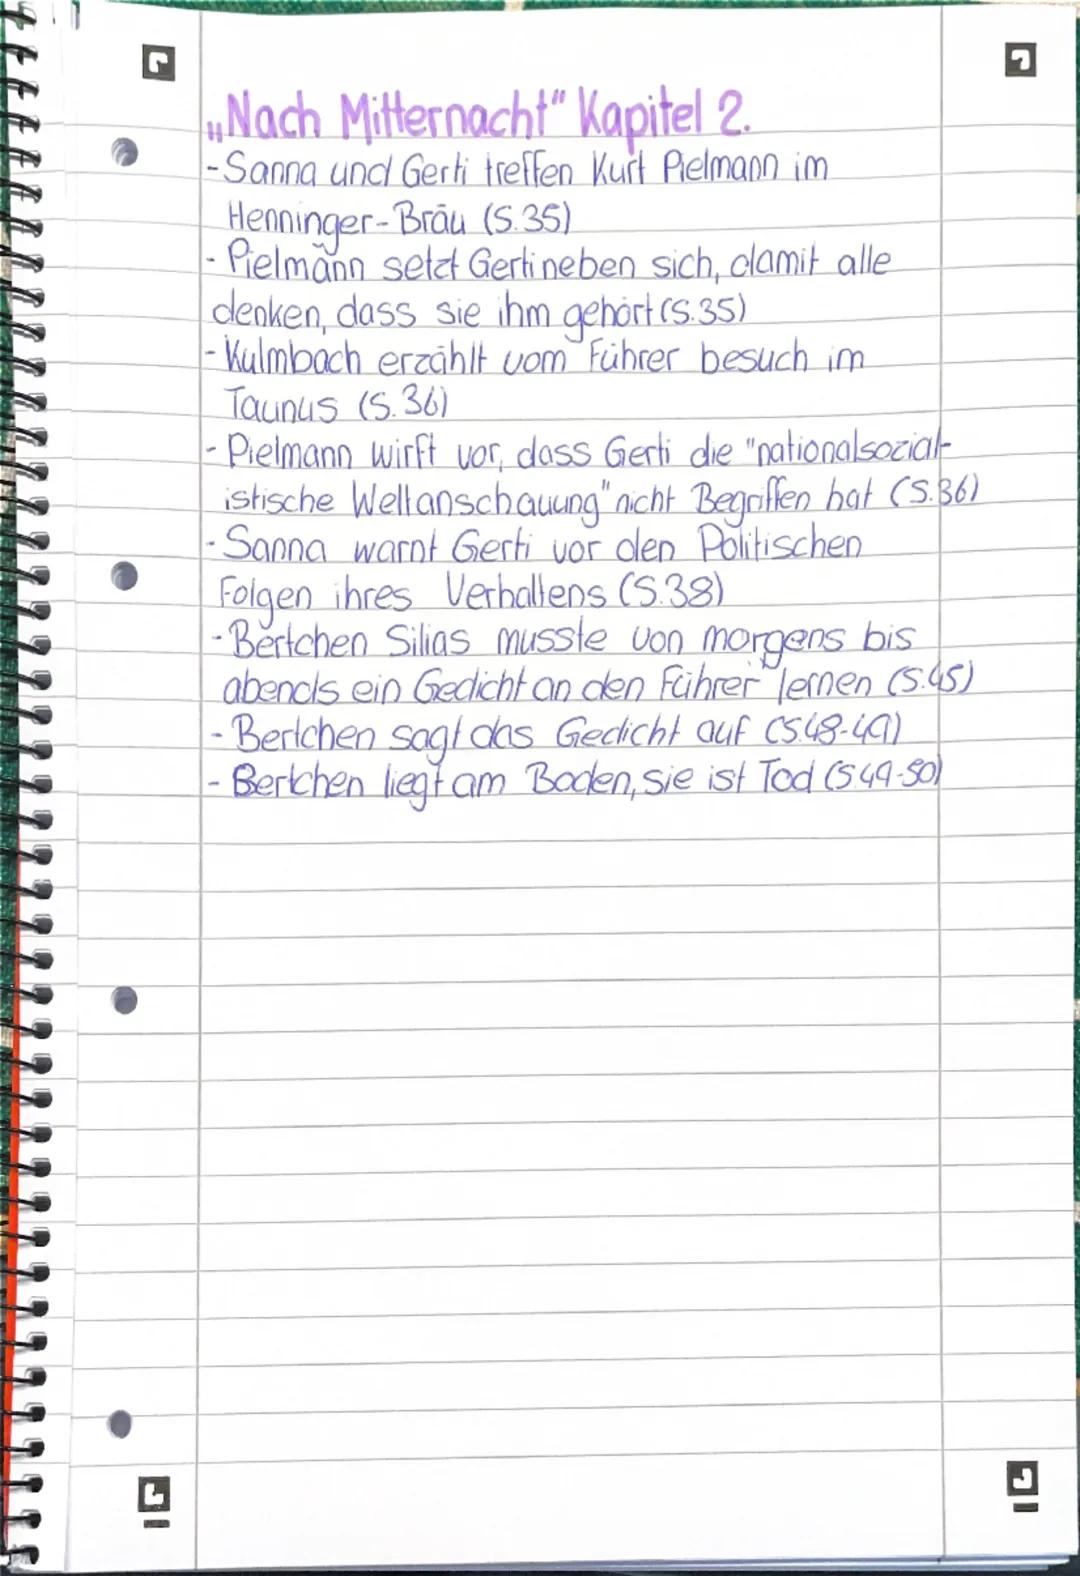 „Nach Mitternacht" Kapitel 2.
- Sanna und Gerti treffen Kurt Pielmann im
Henninger-Bräu (S.35)
- Pielmann setzt Gerti neben sich, damit alle
denken, dass sie ihm gehört (S.35)
- Kulmbach erzählt vom Führer besuch im
Taunus (S.36)
- Pielmann wirft vor, dass Gerti die "nationalsozial-
istische Weltanschauung" nicht Begriffen hat (S.36)
- Sanna warnt Gerti vor den Politischen
Folgen ihres Verhaltens (S.38)
- Bertchen Silias musste von morgens bis
abends ein Gedicht an den Führer lernen (S.45)
- Bertchen sagt das Gedicht auf (S.48-49)
- Bertchen liegt am Boden, sie ist Tod (S.49-50)